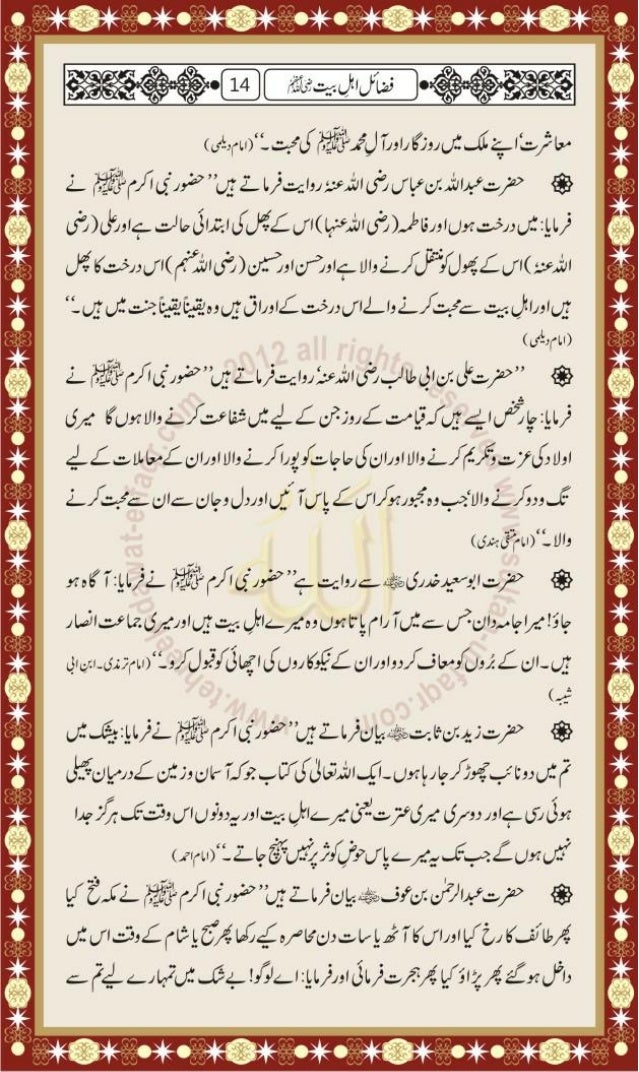 فضائل اہلِ بیت رضی اللہ عنہم 14
معاشرت‘ اپنے ملک میں روزگار اور آلِ محمد ﷺ کی محبت۔‘‘ (امام دیلمی)
حضرت عبداللہ بن عباس رضی اللہ عنہٗ روایت فرماتے ہیں’’ حضور نبی اکرم ﷺ نے
فرمایا: میں درخت ہوں اور فاطمہ (رضی اللہ عنہا) اس کے پھل کی ابتدائی حالت ہے اور علی (رضی
اللہ عنہٗ) اس کے پھول کو منتقل کرنے والا ہے اور حسن اور حسین (رضی اللہ عنہم) اس درخت کا پھل
ہیں اور اہلِ بیت سے محبت کرنے والے اس درخت کے اوراق ہیں وہ یقیناً یقیناً جنت میں ہیں۔‘‘
(امام دیلمی)
’’حضرت علی بن ابی طالب رضی اللہ عنہٗ روایت فرماتے ہیں’’ حضور نبی اکرم ﷺ نے
فرمایا: چار شخص ایسے ہیں کہ قیامت کے روز جن کے لیے میں شفاعت کرنے والا ہوں گا میری
اولاد کی عزت و تکریم کرنے والا اور ان کی حاجات کو پورا کرنے والا اور ان کے معاملات کے لیے
تگ و دو کرنے والا‘ جب وہ مجبور ہو کر اس کے پاس آئیں اور دل و جان سے ان سے محبت کرنے
والا۔‘‘ (امام متقی ہندی)
حضرت ابو سعید خدری رضی اللہ عنہ سے روایت ہے’’ حضور نبی اکرم ﷺ نے فرمایا: آگاہ ہو
جاؤ! میرا جامہ دان جس سے میں آرام پاتا ہوں وہ میرے اہلِ بیت ہیں اور میری جماعت انصار
ہیں۔ ان کے بُروں کو معاف کر دو اور ان کے نیکو کاروں کی اچھائی کو قبول کرو۔‘‘ (امام ترمذی۔ ابن ابی
شیبہ)
حضرت زید بن ثابت رضی اللہ عنہ بیان فرماتے ہیں’’ حضور نبی اکرم ﷺ نے فرمایا: بیشک میں
تم میں دو نائب چھوڑ کر جا رہا ہوں۔ ایک اللہ تعالیٰ کی کتاب جو کہ آسمان و زمین کے درمیان پھیلی
ہوئی رسی ہے اور دوسری میری عترت یعنی میرے اہلِ بیت اور یہ دونوں اس وقت تک ہرگز جدا
نہیں ہوں گے جب تک یہ میرے پاس حوضِ کوثر پر نہیں پہنچ جاتے۔‘‘ (امام احمد)
حضرت عبدالرحمٰن بن عوف رضی اللہ عنہ بیان فرماتے ہیں’’ حضور نبی اکرم ﷺ نے مکہ فتح کیا
پھر طائف کا رخ کیا اور اس کا آٹھ یا سات دن محاصرہ کیے رکھا پھر صبح یا شام کے وقت اس میں
داخل ہو گئے پھر پڑاؤ کیا پھر ہجرت فرمائی اور فرمایا: اے لوگو! بے شک میں تمہارے لیے تم سے
اللہ